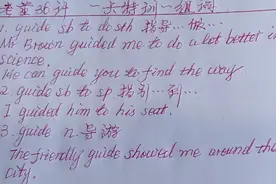 考童36计 一天特训一组词
1. guide sb to do sth 指导…做…
Mr Brown guided me to do a lot better in
science.
We can guide you to find the way
2 guide sb to sp 指引…到…
I guided him to his seat.
3. guide n. 导游
The friendly guide showed me around the
city.